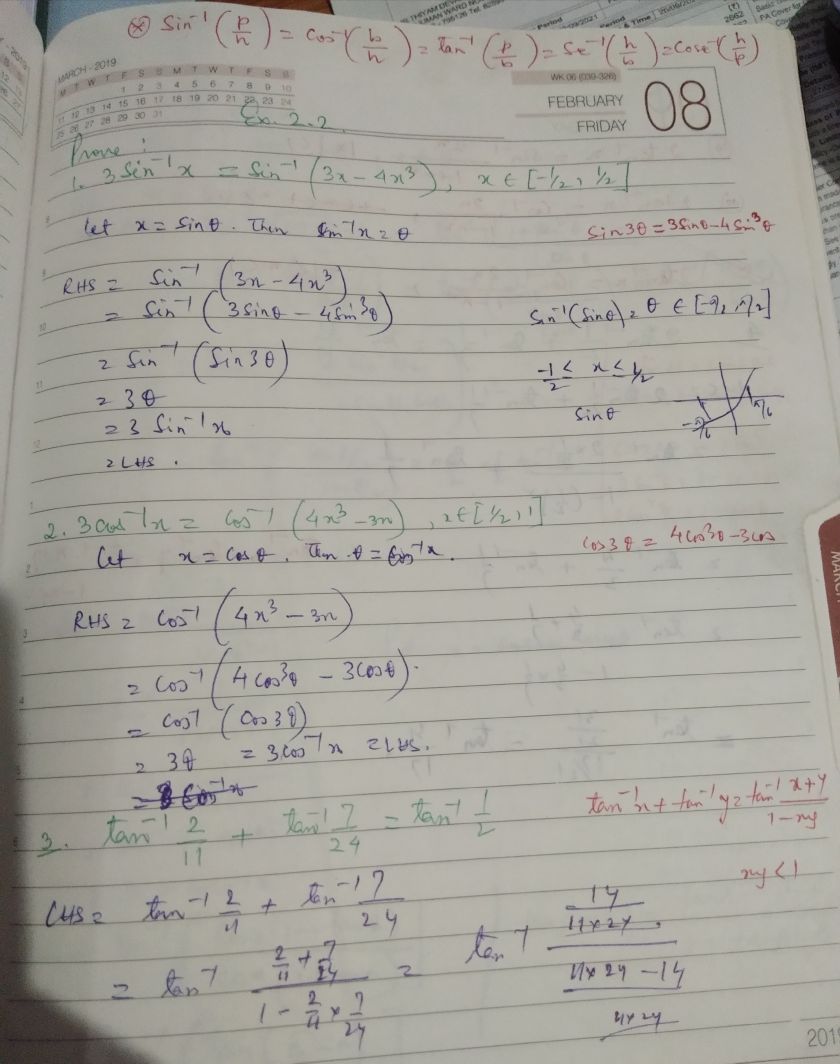 ⊛ Sin⁻¹ (p/h) = Cos⁻¹ (b/h) = tan⁻¹ (p/b) = Se⁻¹ (h/b) = Cose⁻¹ (h/p)
MARCH - 2019
M T W T F S S M T W T F S S
1 2 3 4 5 6 7 8 9 10
11 12 13 14 15 16 17 18 19 20 21 22 23 24
25 26 27 28 29 30 31
WK 06 (039-326)
FEBRUARY
FRIDAY
08
Ex. 2.2.
Prove :
1. 3 Sin⁻¹ x = Sin⁻¹ (3x - 4x³), x ∈ [-1/2, 1/2]
Let x = Sinθ. Then Sin⁻¹x = θ
Sin3θ = 3Sinθ - 4Sin³θ
RHS = Sin⁻¹ (3x - 4x³)
= Sin⁻¹ (3Sinθ - 4Sin³θ)
Sin⁻¹(Sinθ) = θ ∈ [-π/2, π/2]
= Sin⁻¹ (Sin3θ)
-1/2 ≤ x ≤ 1/2
= 3θ
Sinθ
-π/6 π/6
= 3 Sin⁻¹x
= LHS.
2. 3cos⁻¹x = Cos⁻¹ (4x³ - 3x), x∈[1/2, 1]
Let x = Cosθ. Then θ = Cos⁻¹x.
Cos3θ = 4Cos³θ - 3Cos
RHS = Cos⁻¹ (4x³ - 3x)
= Cos⁻¹ (4Cos³θ - 3Cosθ).
= Cos⁻¹ (Cos3θ)
= 3θ = 3Cos⁻¹x = LHS.
3. tan⁻¹ 2/11 + tan⁻¹ 7/24 = tan⁻¹ 1/2
tan⁻¹x + tan⁻¹y = tan⁻¹ x+y/1-xy
xy < 1
LHS = tan⁻¹ 2/11 + tan⁻¹ 7/24
= tan⁻¹ (2/11 + 7/24)/(1 - 2/11 × 7/24) = tan⁻¹ (14/11×24)/(11×24 - 14/11×24)